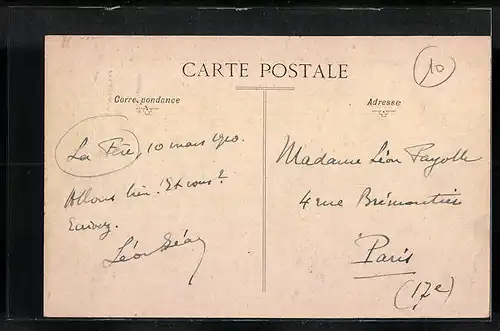 CARTE POSTALE
10
Correspondance
Adresse
La Fère, 10 mars 1910.
Allons bien! Et vous?
Ecrivez.
Léon
Madame Léon Payelle
4 rue Brémontier
Paris
(17e)